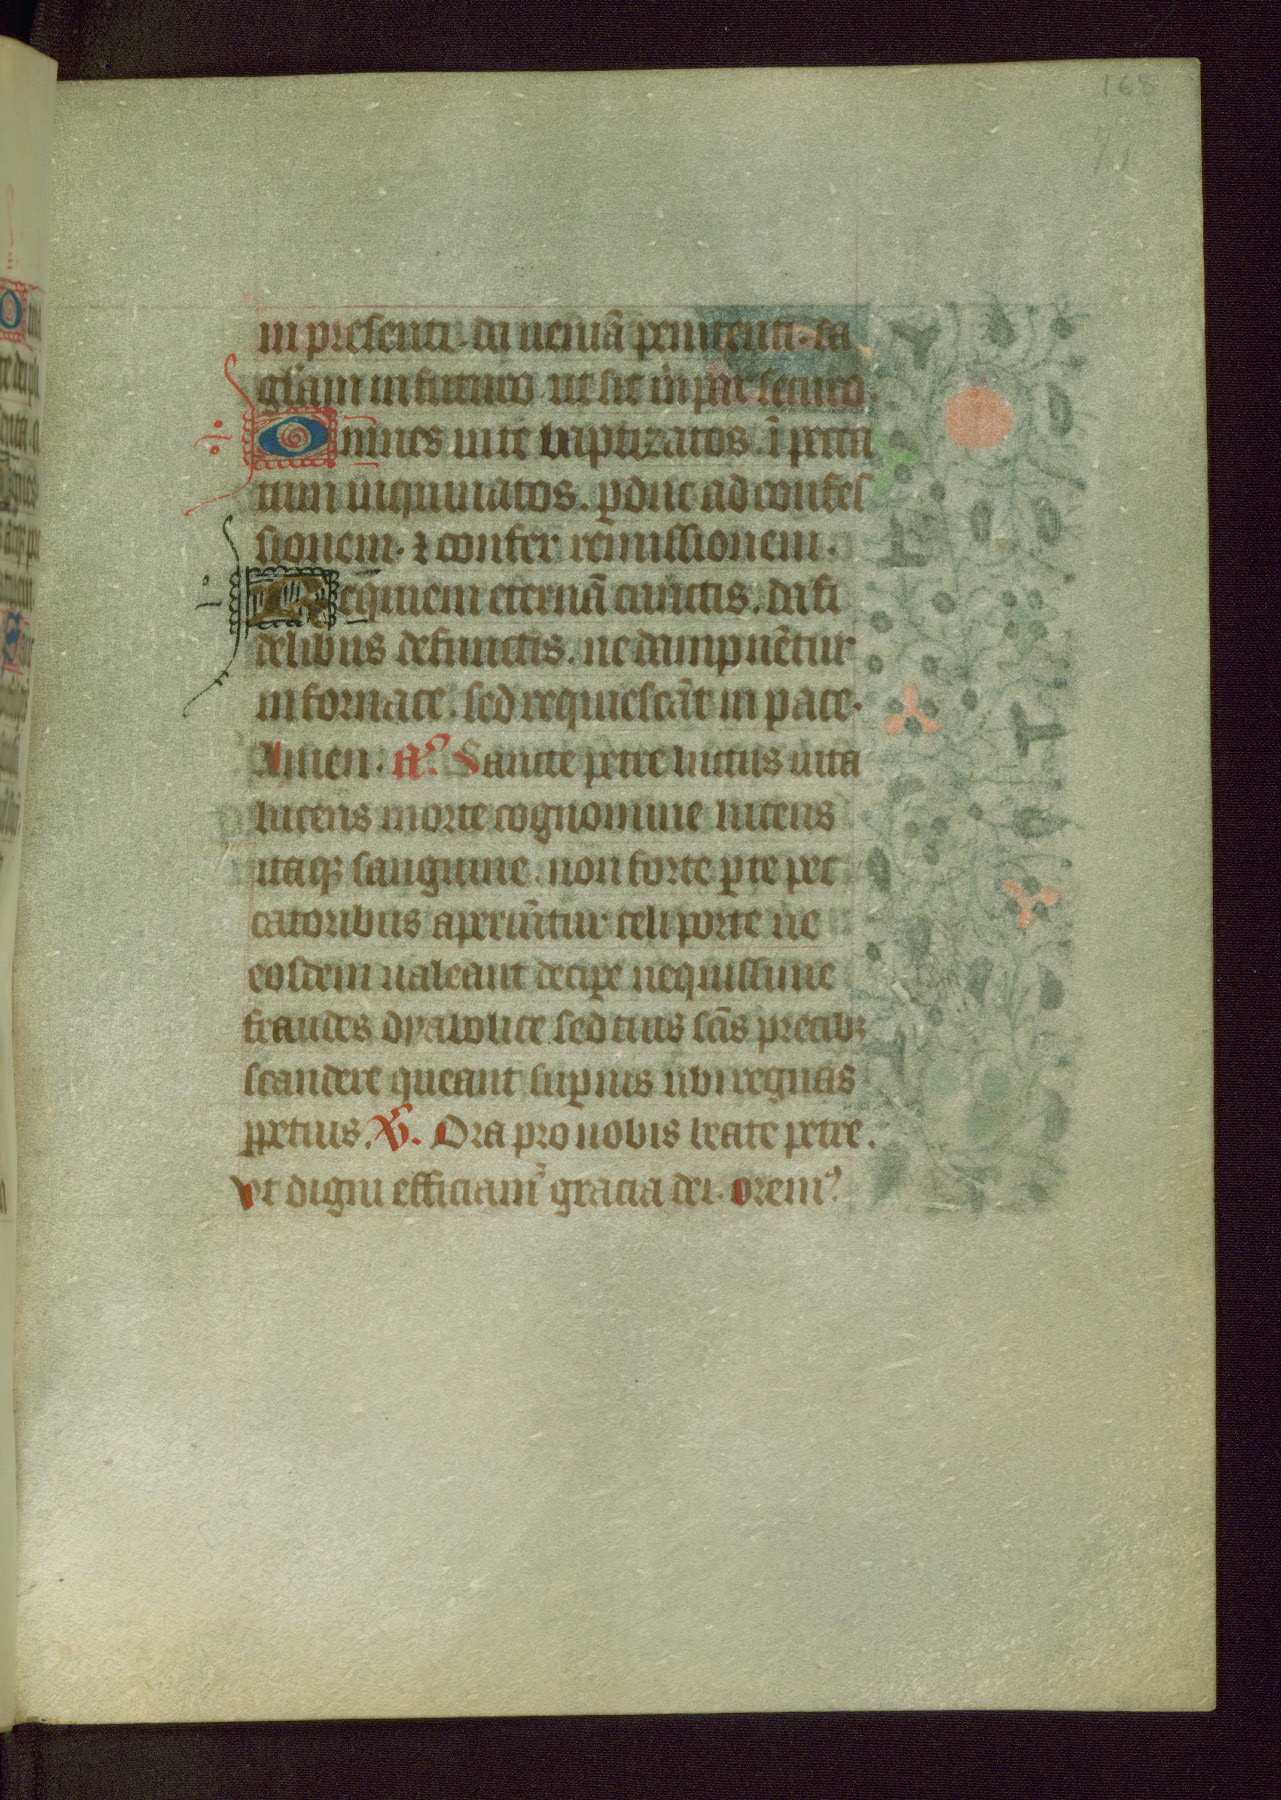 168
in presenti. da ueniã penitenti. da
gl̃am in futuro ut sit in par securo.
Omnes in te baptizatos. ĩ pecca
tum inquinatos. ꝑduc ad confes
sionem. ⁊ confer remissionem.
Requiem eternã cunctis. da fi
delibus defunctis. ne dampnẽtur
in fornace. sed requiescãt in pace.
Amen. añ. Sancte petre uictus uita
lucens morte cognomine lucens
itaqꝫ sanguine. non forte ꝑ te pec
catoribus aperiũtur celi porte ne
eosdem ualeant deciꝑe nequissime
fraudes dyabolice sed tuis sc̃is precibꝫ
scandere queant suꝑius ubi regnas
ꝑpetuus. V̾. Ora pro nobis beate petre.
Vt digni efficiam᷑ gracia dei. oremꝰ